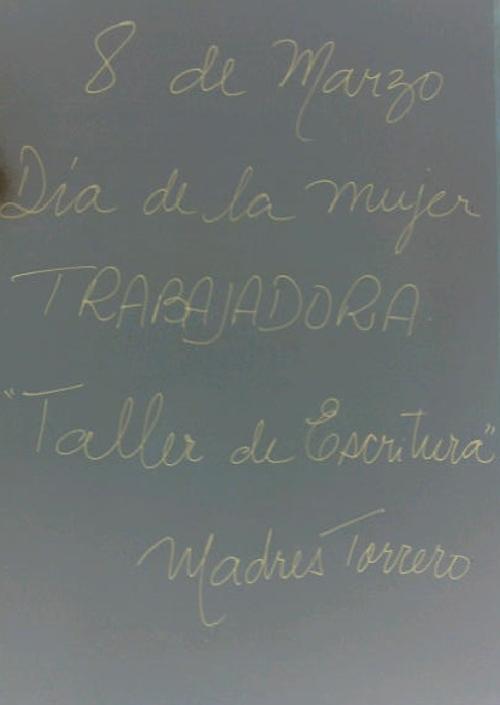 8 de Marzo
Día de la mujer
TRABAJADORA
"Taller de Escritura"
Madres Torrero